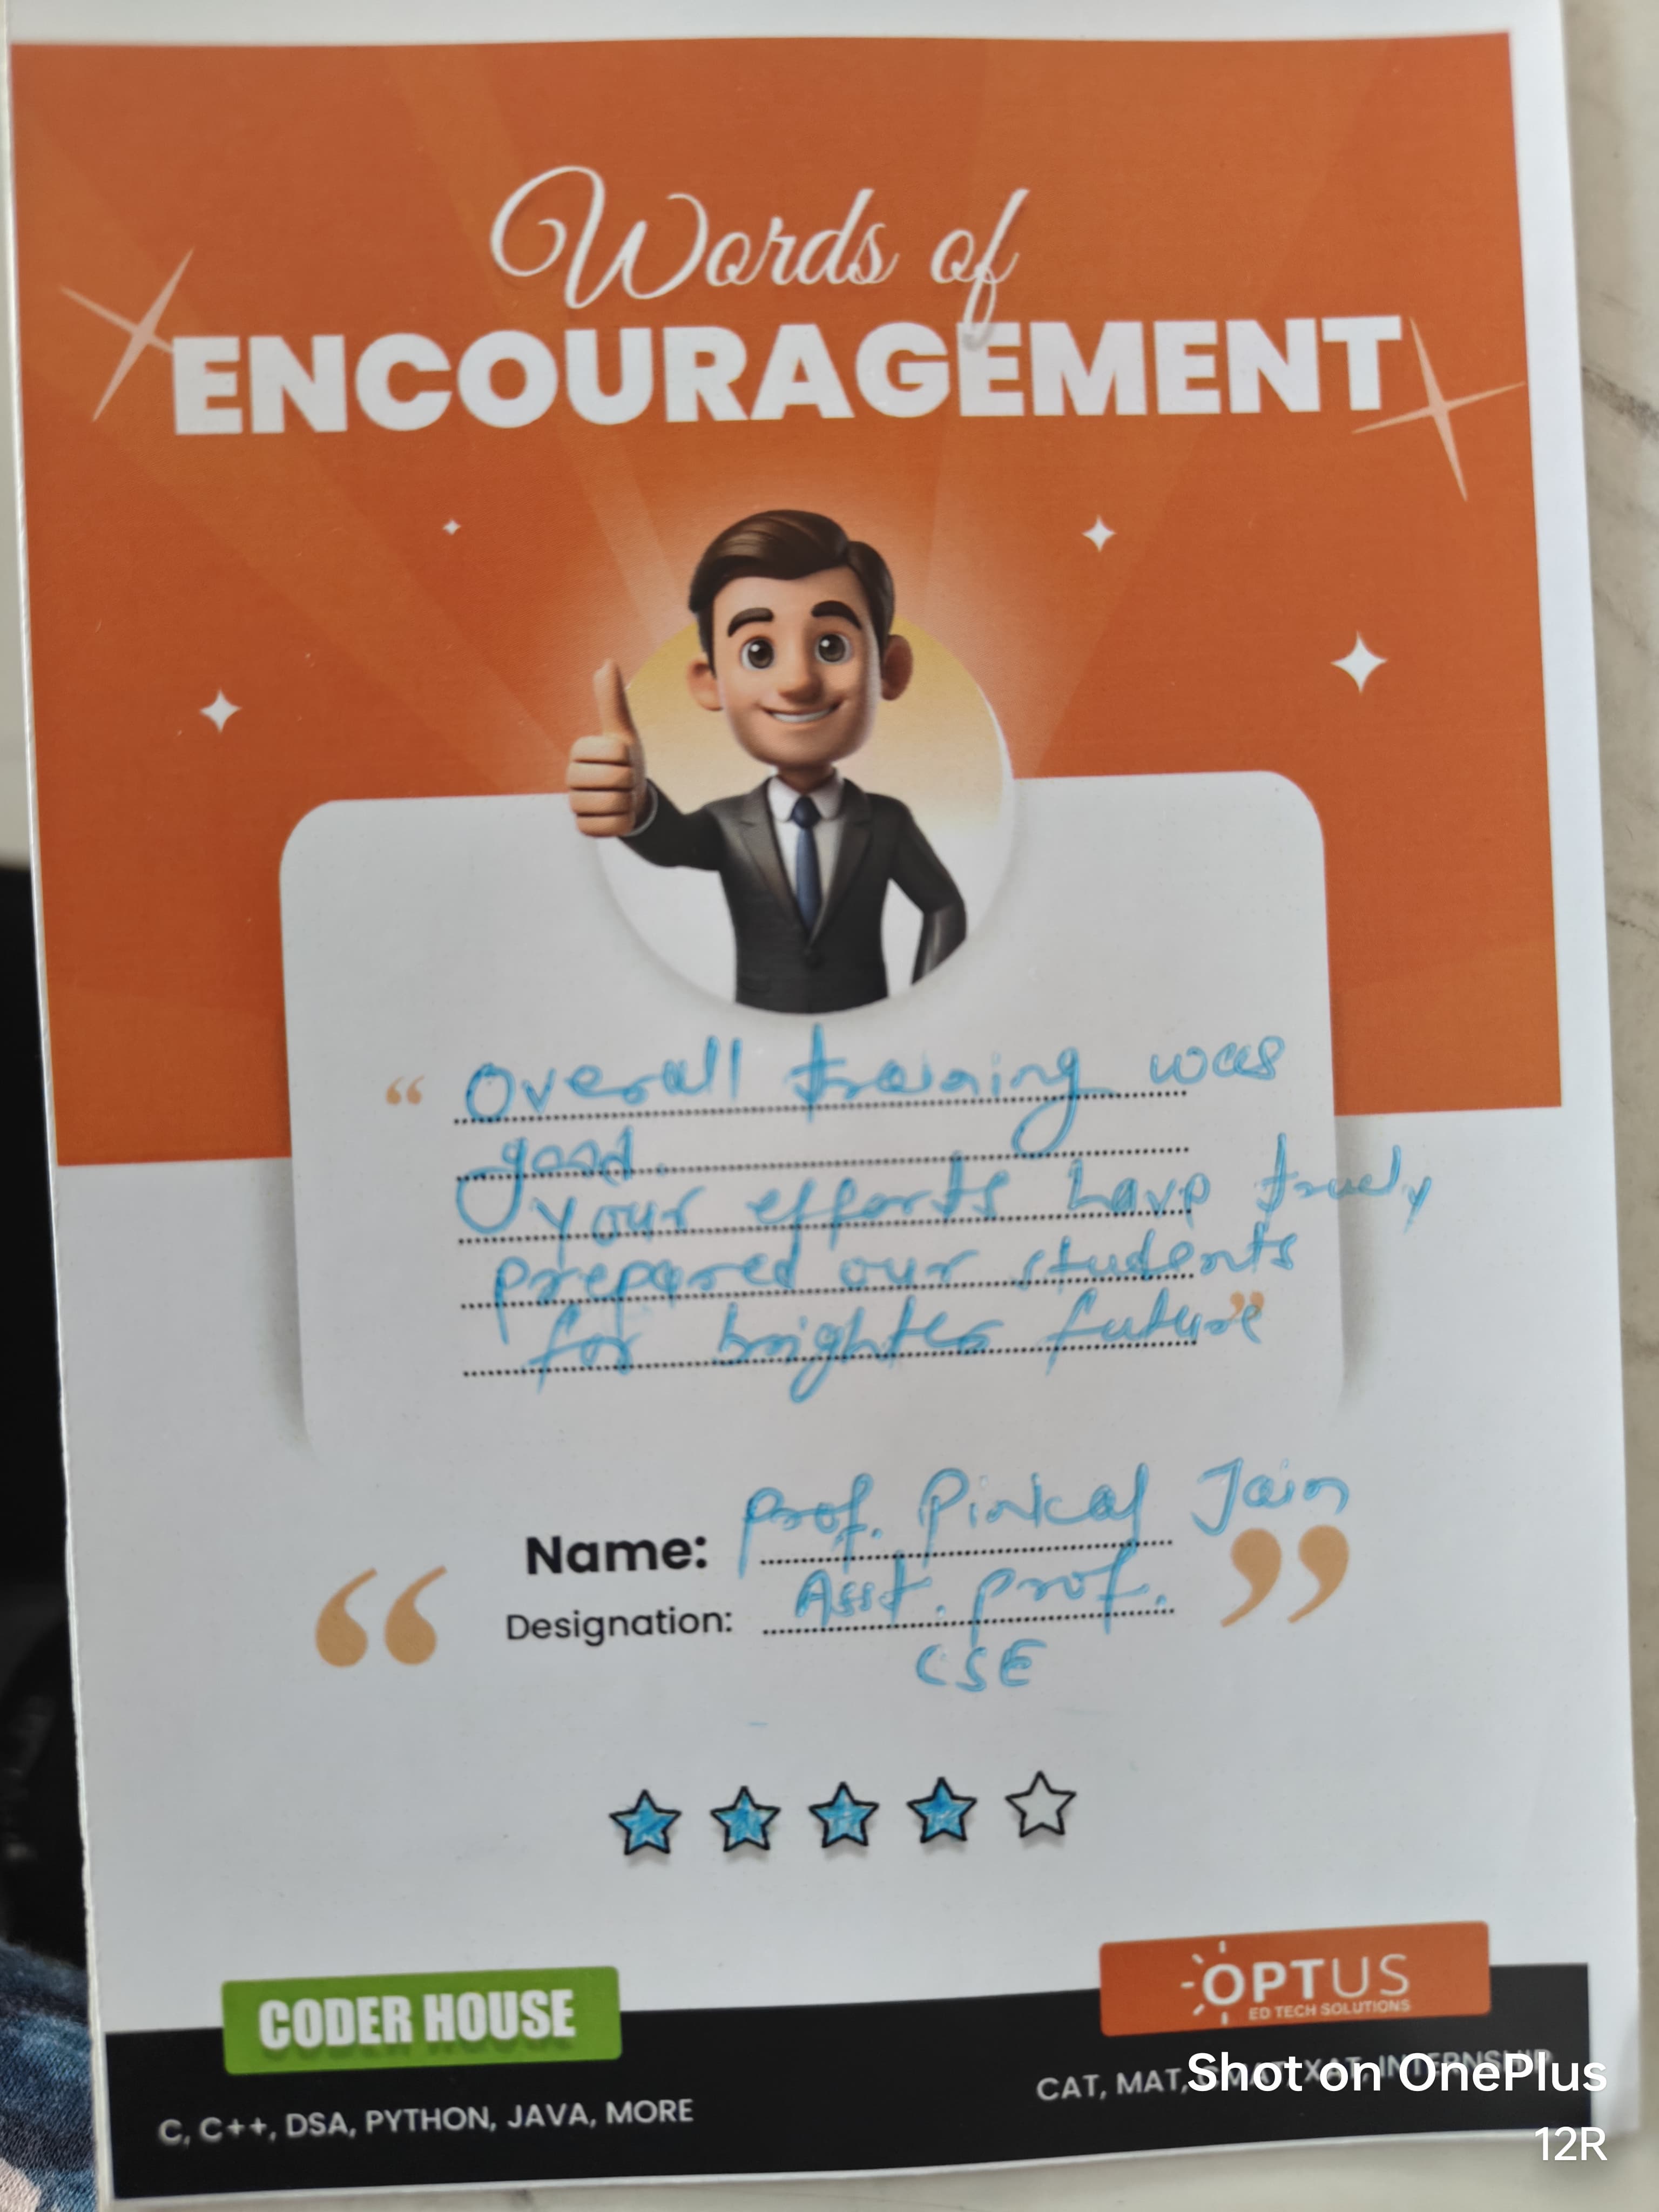 Words of
ENCOURAGEMENT
“ Overall training was
good.
your efforts have truely
prepared our students
for brighter future ”
Name: Prof. Pinkal Jain
“ Designation: Asst. Prof. ”
CSE
CODER HOUSE
C, C++, DSA, PYTHON, JAVA, MORE
OPTUS
ED TECH SOLUTIONS
CAT, MAT, CMAT, XAT, INTERNSHIP
Shot on OnePlus
12R